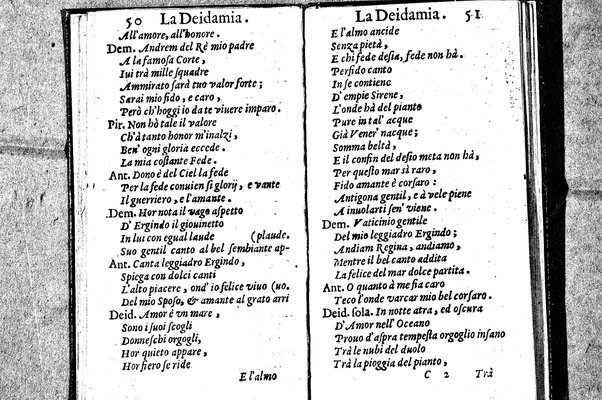 50 La Deidamia.
All'amore, all'honore.
Dem. Andrem del Rè mio padre
A la famosa Corte,
Iui trà mille squadre
Ammirato sarà tuo valor forte;
Sarai mio fido, e caro,
Però ch'hoggi io da te viuere imparo.
Pir. Non hò tale il valore
Ch'à tanto honor m'inalzi,
Ben' ogni gloria eccede.
La mia costante Fede.
Ant. Dono è del Ciel la fede
Per la fede conuien si glorij, e vante
Il guerriero, e l'amante.
Dem. Hor nota il vago aspetto
D'Ergindo il giouinetto
In lui con egual laude (plaude.
Suo gentil canto al bel sembiante ap-
Ant. Canta leggiadro Ergindo,
Spiega con dolci canti
L'alto piacere, ond' io felice viuo (uo.
Del mio Sposo, & amante al grato arri
Deid. Amor è vn mare,
Sono i suoi scogli
Donneschi orgogli,
Hor quieto appare,
Hor fiero se ride
E l'almo
La Deidamia. 51
E l'almo ancide
Senza pietà,
E chi fede desia, fede non hà.
Perfido canto
In se contiene
D'empie Sirene,
L'onde hà del pianto
Pure in tal' acque
Già Vener' nacque;
Somma beltà,
E il confin del desio meta non hà,
Per questo mar sà raro,
Fido amante è corsaro:
Antigona gentil, e à vele piene
A inuolarti sen' viene.
Dem. Vaticinio gentile
Del mio leggiadro Ergindo;
Andiam Regina, andiamo,
Mentre il bel canto addita
La felice del mar dolce partita.
Ant. O quanto à me fia caro
Teco l'onde varcar mio bel corsaro.
Deid. sola. In notte atra, ed oscura
D'Amor nell' Oceano
Prouo d'aspra tempesta orgoglio insano
Trà le nubi del duolo
Trà la pioggia del pianto,
C 2 Trà